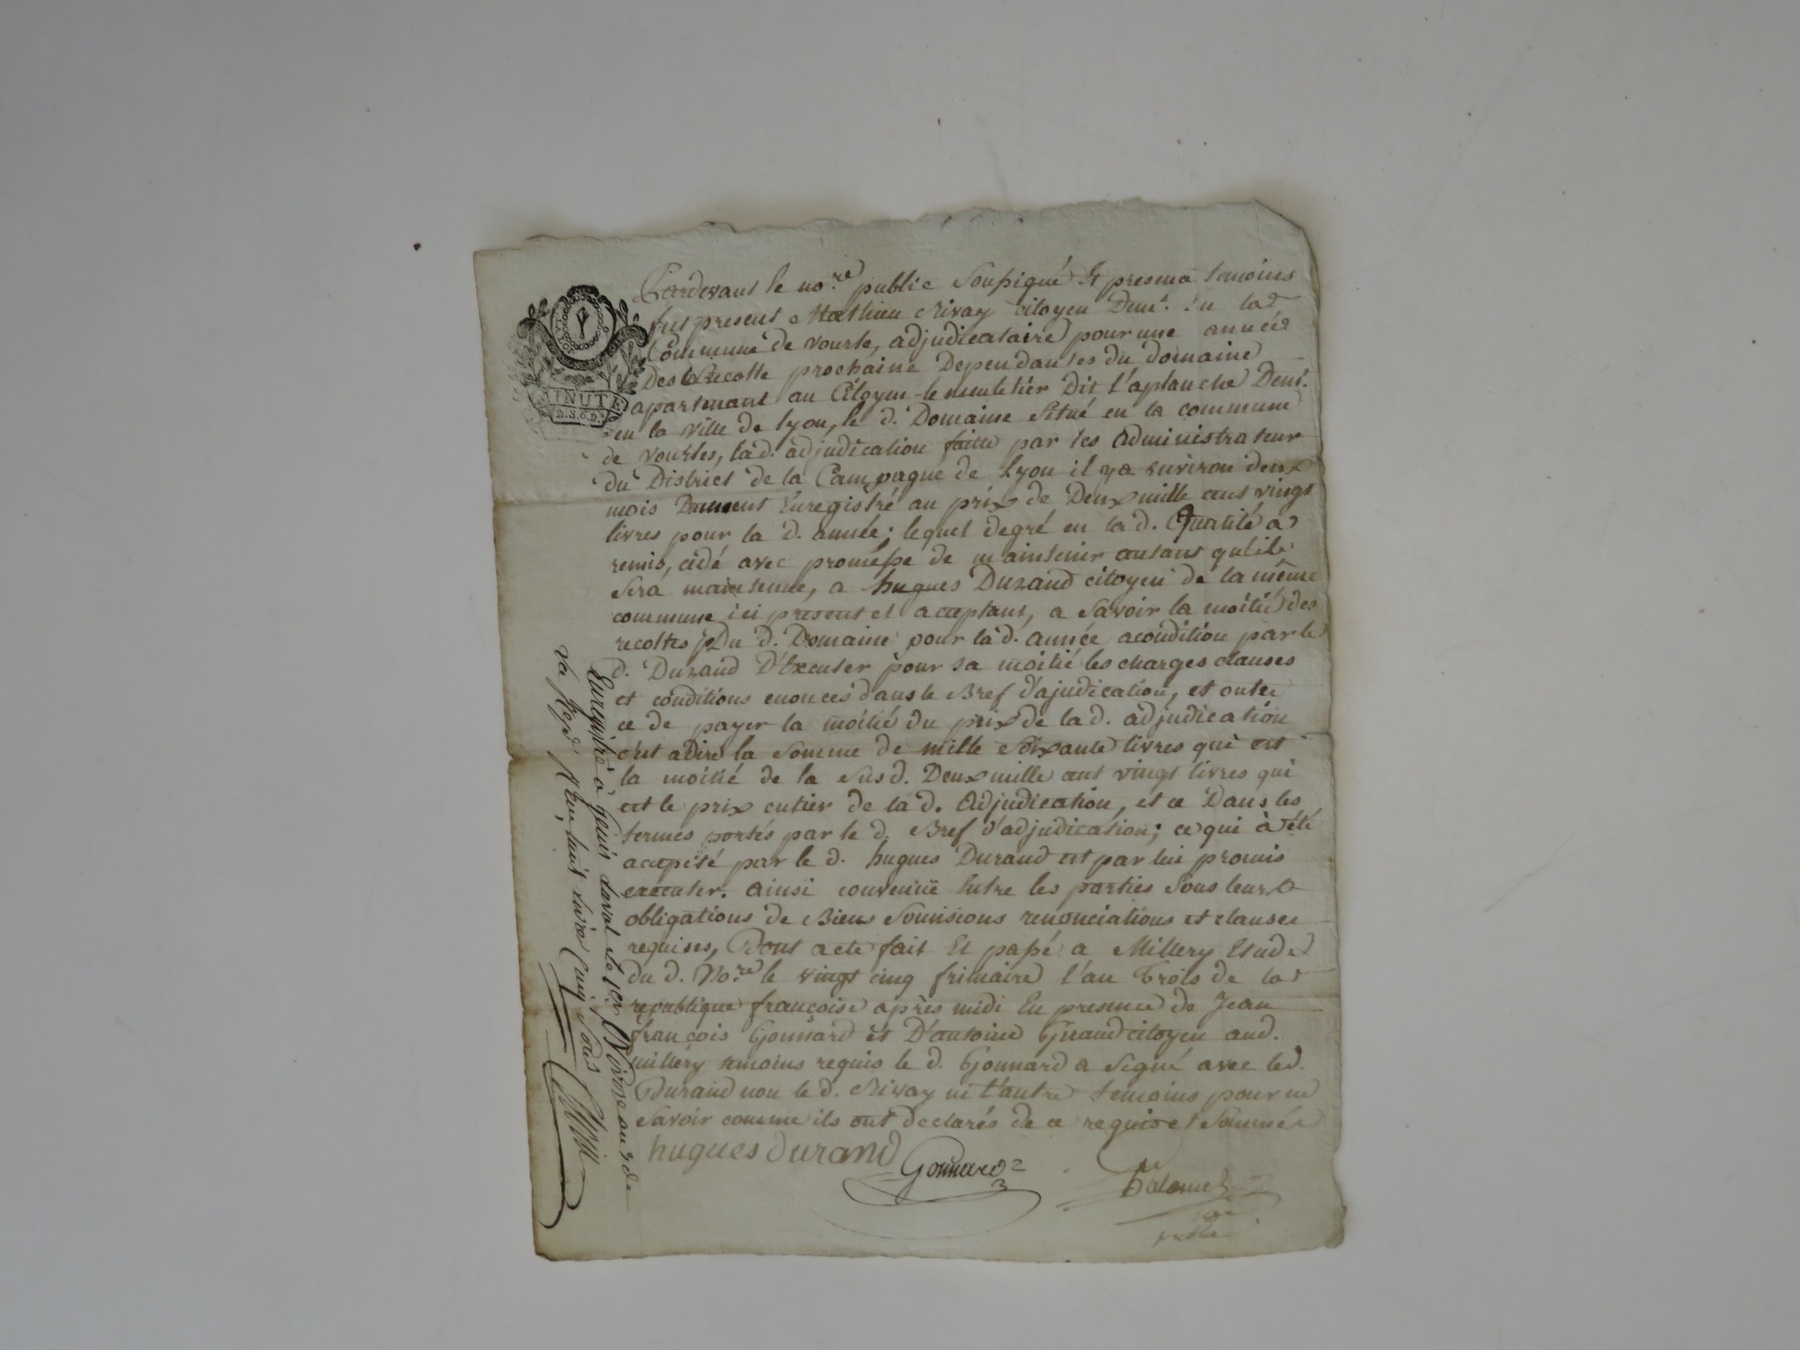 MINUTE
2. S. 6. D.
Pardevant le no.re public soussigné Et presma temoins
fut present Mathieu Rivay citoyen Dem.t En la
Commune de vourle, adjudicataire pour une année
Des Recolte prochaine Dependantes du domaine
apartenant au Citoyen le Dit L'aplanche Dem.t
en la ville de Lyon, le d. Domaine situé en la commune
de vourles, lad. adjudication faitte par les administrateur
du District de la Campagne de Lyon il ya environ deux
mois Dument Enregistré au prix de Deux mille cent vingt
livres pour la d. année; lequel degré en la d. Qualité a
remis, cédé avec promesse de maintenir autant qu'il
sera maintenue, a hugues Durand citoyen de la même
commune ici present et acceptant, a savoir la moitié des
recoltes Du d. Domaine pour la d. année acondition par le
d. Durand D'Executer pour sa moitié les charges clauses
et conditions enoncés dans le Bref d'ajudication, et outre
ce de payer la moitié du prix de la d. adjudication
c'est adire la somme de mille soixante livres qui est
la moitié de la sus d. Deux mille cent vingt livres qui
est le prix entier de la d. adjudication, et ce Dans les
termes portés par le d. Bref d'adjudication; ce qui à été
accepté par le d. hugues Durand et par lui promis
executer. ainsi convenue Entre les parties sous leurs
obligations de Biens soumissions renonciations et clauses
requises, Dont acte fait Et passé a Millery Etude
du d. No.re le vingt cinq frimaire l'an Trois de la
republique françoise après midi En presence de Jean
françois Gonnard et D'antoine Giraud citoyen aud.
millery temoins requis le d. Gonnard a signé avec led.
Durand non le d. Rivay ni l'autre temoins pour ne
savoir comme ils ont declarés de ce requis et sommés
hugues durand
Gonnard
public
Enregistré à le 1er Nivose an 3 de
la Rep. livre Cinq sous